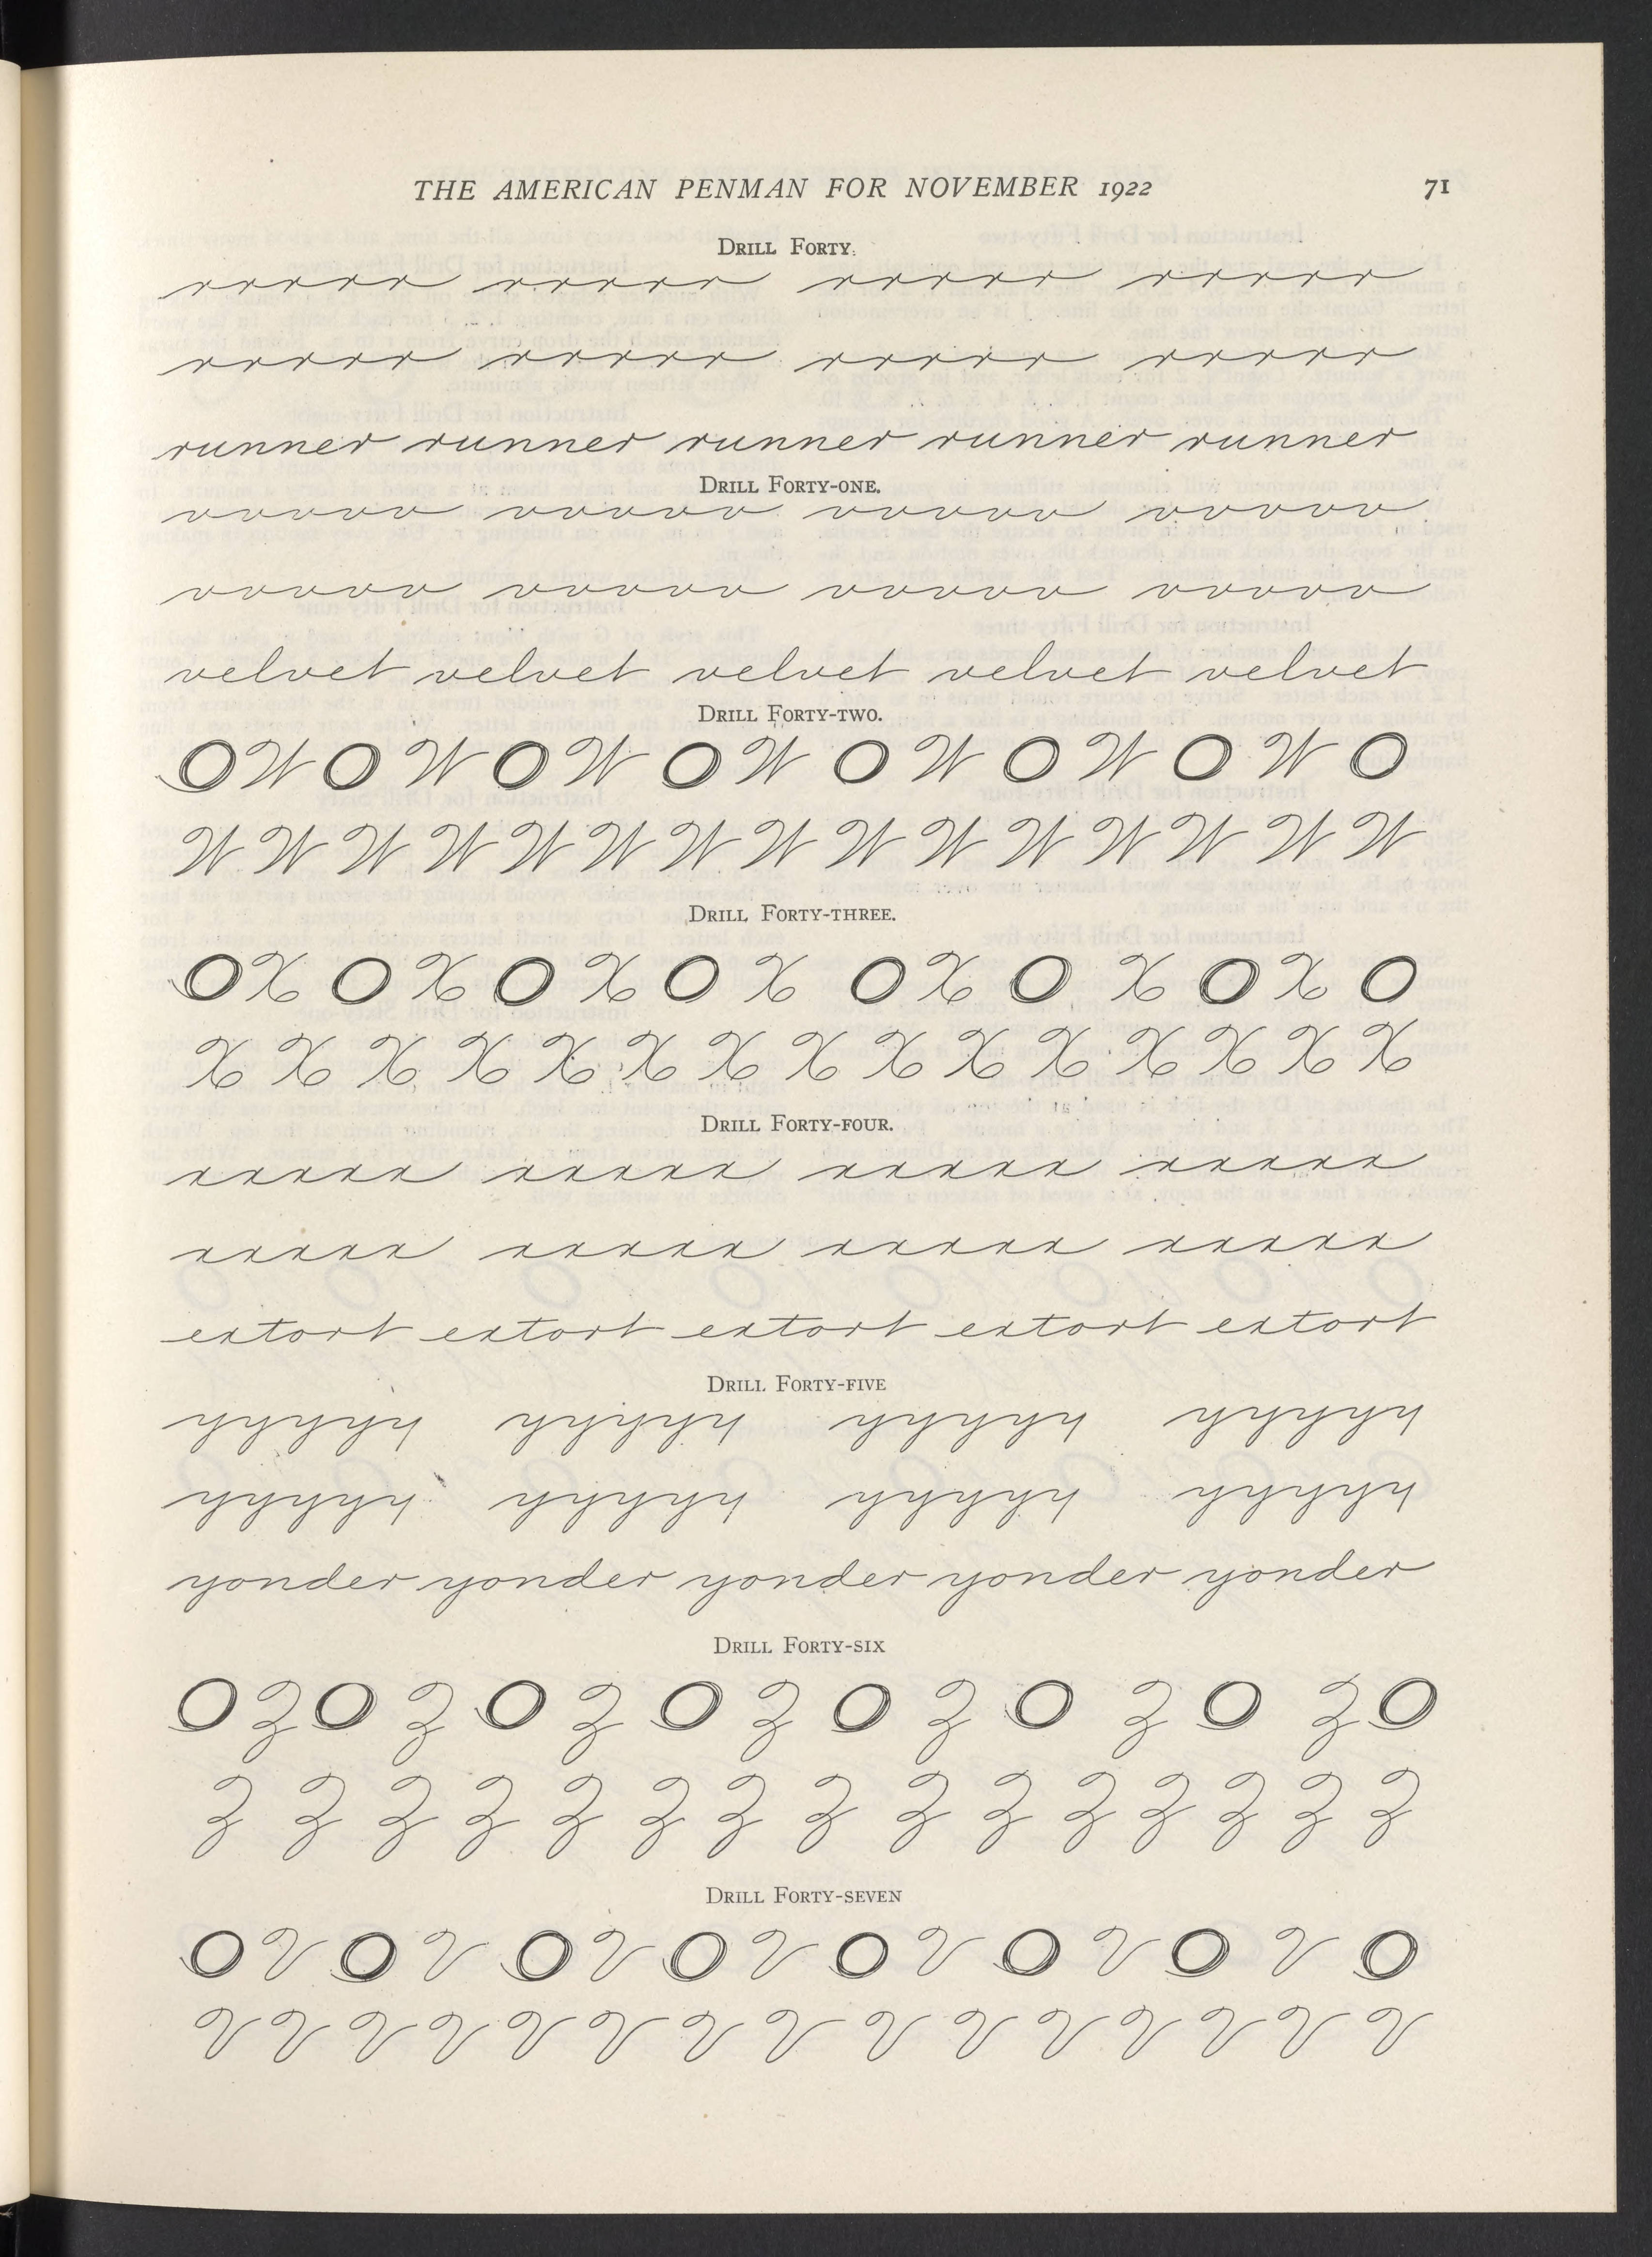 THE AMERICAN PENMAN FOR NOVEMBER 1922 71
DRILL FORTY.
rrrrr rrrrr rrrrr rrrrr
rrrrr rrrrr rrrrr rrrrr
runner runner runner runner runner
DRILL FORTY-ONE.
vvvvv vvvvv vvvvv vvvvv
vvvvv vvvvv vvvvv vvvvv
velvet velvet velvet velvet velvet
DRILL FORTY-TWO.
O W O W O W O W O W O W O W O
W W W W W W W W W W W W W W W
DRILL FORTY-THREE.
O X O X O X O X O X O X O X O
X X X X X X X X X X X X X X X
DRILL FORTY-FOUR.
xxxxx xxxxx xxxxx xxxxx
xxxxx xxxxx xxxxx xxxxx
extort extort extort extort extort
DRILL FORTY-FIVE
yyyyy yyyyy yyyyy yyyyy
yyyyy yyyyy yyyyy yyyyy
yonder yonder yonder yonder yonder
DRILL FORTY-SIX
O Z O Z O Z O Z O Z O Z O Z O
Z Z Z Z Z Z Z Z Z Z Z Z Z Z Z
DRILL FORTY-SEVEN
O V O V O V O V O V O V O V O
V V V V V V V V V V V V V V V